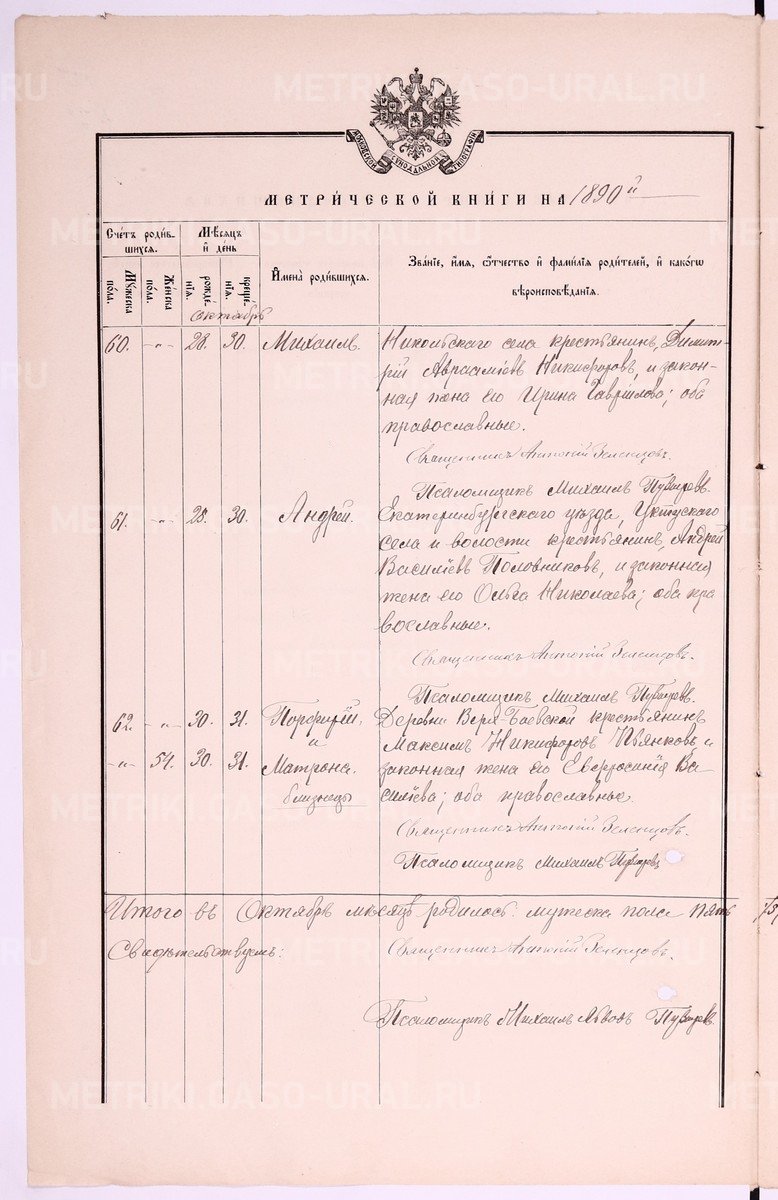 МОСКОВСКОЙ СѴНОДАЛЬНОЙ ТИПОГРАФІИ
МЕТРИ́ЧЕСКОЙ КНИ́ГИ НА 1890й
Сче́тъ роди́в-
шихся.
Мѣ́сяцъ
и҆ де́нь
Му́жеска
по́ла.
Же́нска
по́ла.
рожде́-
нїя.
креще́-
нїя.
И҆мена̀ роди́вшихся.
Зва́нїе, и҆́мя, ѻ҆́тчество и҆ фами́лїя роди́телей, и҆ како́гѡ
вѣроисповѣ́данїя.
Октябрь
60. -„- 28. 30. Михаилъ.
Никольскаго села крестьянинъ, Димит-
рій Авраамiевъ Никифоровъ, и закон-
ная жена его Ирина Гаврiилова; оба
православные.
Священникъ Антоній Зеленцовъ.
Псаломщикъ Михаилъ
61. -„- 28. 30. Андрей.
Екатеринбургскаго уѣзда, Уктусскаго
села и волости крестьянинъ, Андрей
Василіевъ Половниковъ, и законная
жена его Ольга Николаева; оба пра
вославные.
Священникъ Антоній Зеленцовъ.
Псаломщикъ Михаилъ
62. -„- 30. 31. Порфирій,
и
-„- 54. 30. 31. Матрона.
близнецы
Деревни Верх-Боевской крестьянинъ
Максимъ Никифоровъ Пьянковъ и
законная жена его Евфросинія Ва-
силіева; оба православные.
Священникъ Антоній Зеленцовъ.
Псаломщикъ Михаилъ
Итого въ Октябрѣ мѣсяцѣ родилось: мужеска пола пять
Свидѣтельствуемъ:
Священникъ Антоній Зеленцовъ.
Псаломщикъ Михаилъ
METRIKI.CASO-URAL.RU